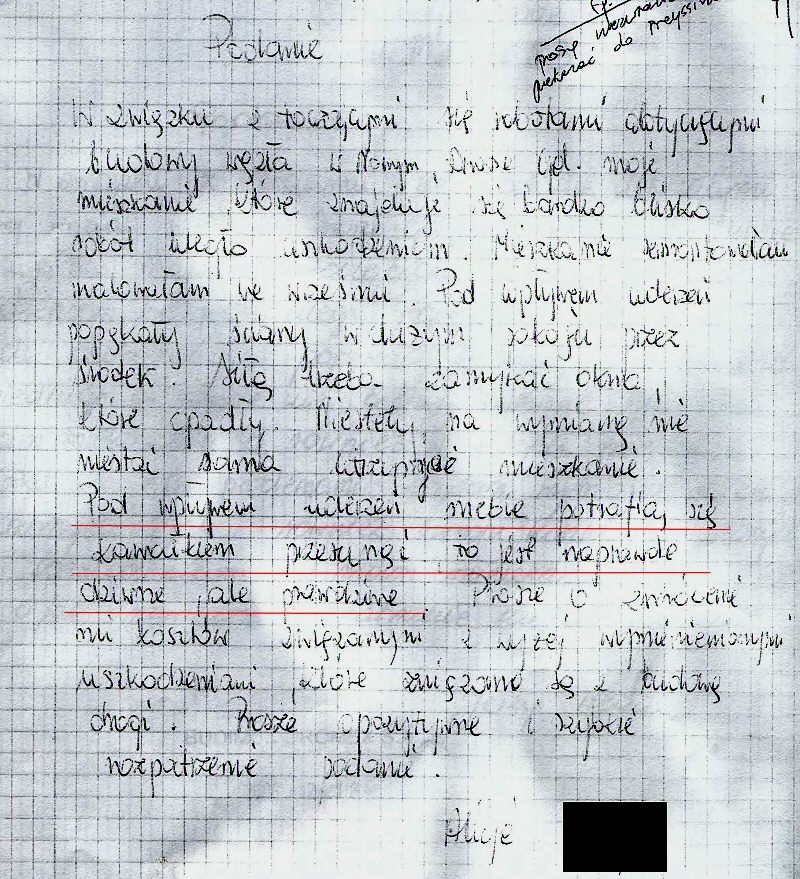 proszę
przekazać do
Podanie
W związku z toczącymi się robotami dotyczącymi
budowy węzła w Nowym Dworze Gd. moje
mieszkanie, które znajduje się bardzo blisko
robót uległo uszkodzeniom. Mieszkanie remontowałam
malowałam we wrześniu. Pod wpływem uderzeń
popękały ściany w dużym pokoju przez
środek. Siłą trzeba zamykać okna,
które opadły. Niestety, na wymianę nie
stać sama mieszkanie.
Pod wpływem uderzeń meble potrafią się
kawałkiem przesunąć to jest naprawdę
dziwne, ale prawdziwe. Proszę o zwrócenie
mi kosztów związanymi z wyżej wymienionymi
uszkodzeniami, które związane są z budową
drogi. Proszę o pozytywne i szybkie
rozpatrzenie podanie.
Alicja